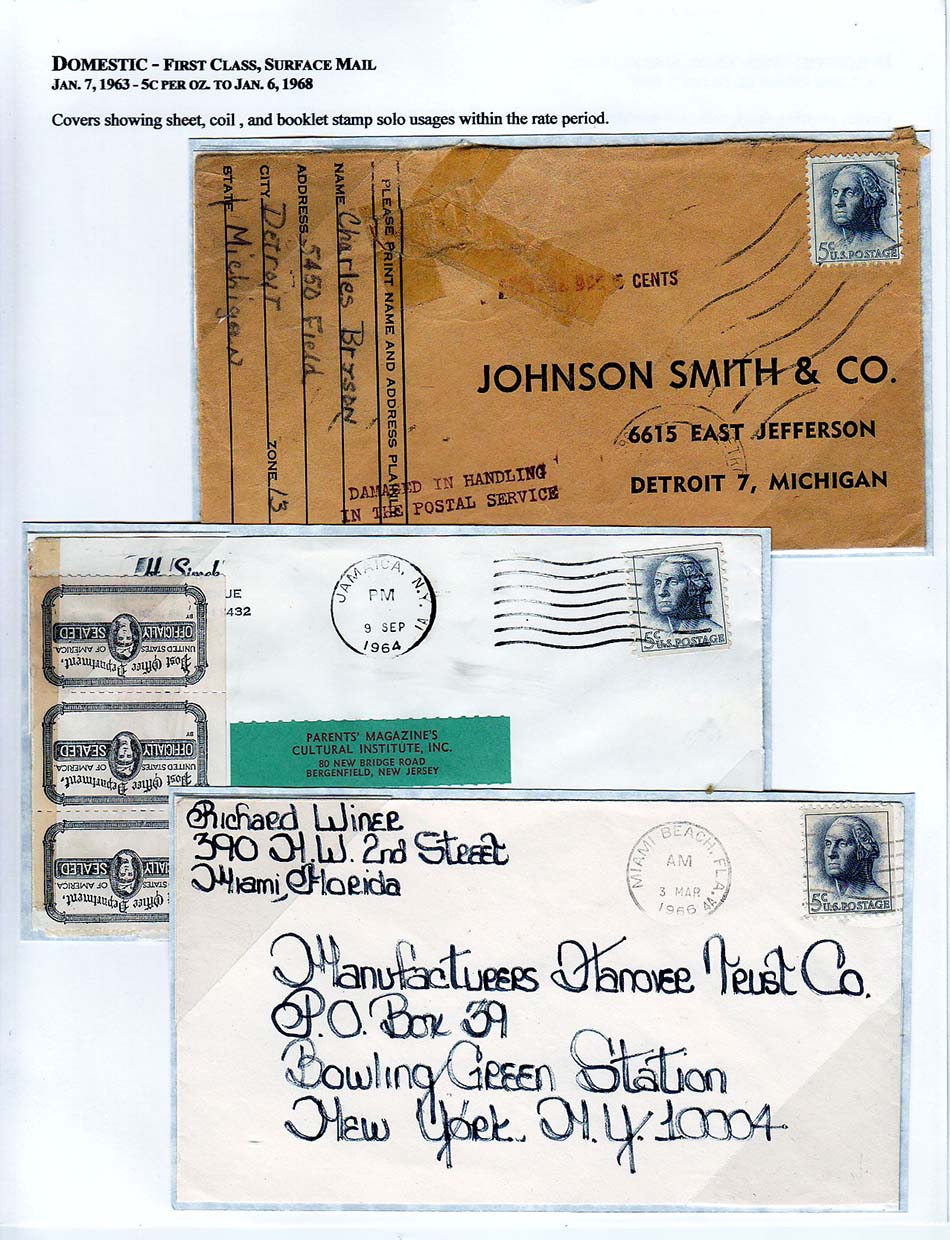 DOMESTIC - FIRST CLASS, SURFACE MAIL
JAN. 7, 1963 - 5C PER OZ. TO JAN. 6, 1968
Covers showing sheet, coil , and booklet stamp solo usages within the rate period.
PLEASE PRINT NAME AND ADDRESS PLAINLY
NAME Charles Bryson
ADDRESS 5450 Field
CITY Detroit ZONE 13
STATE Michigan
5c
U.S. POSTAGE
5 CENTS
JOHNSON SMITH & CO.
6615 EAST JEFFERSON
DETROIT 7, MICHIGAN
DAMAGED IN HANDLING
IN THE POSTAL SERVICE
UE
432
JAMAICA, N.Y.
PM
9 SEP
1964
1A
5c
U.S. POSTAGE
Post Office Department,
UNITED STATES OF AMERICA
OFFICIALLY SEALED
BY
Post Office Department,
UNITED STATES OF AMERICA
OFFICIALLY SEALED
BY
Post Office Department,
UNITED STATES OF AMERICA
CIALLY SEALED
PARENTS' MAGAZINE'S
CULTURAL INSTITUTE, INC.
80 NEW BRIDGE ROAD
BERGENFIELD, NEW JERSEY
Richard Winer
390 N.W. 2nd Street
Miami, Florida
MIAMI BEACH, FLA.
AM
3 MAR
1966
AA
5c
U.S. POSTAGE
Manufacturers Hanover Trust Co.
P.O. Box 39
Bowling Green Station
New York, N.Y. 10004